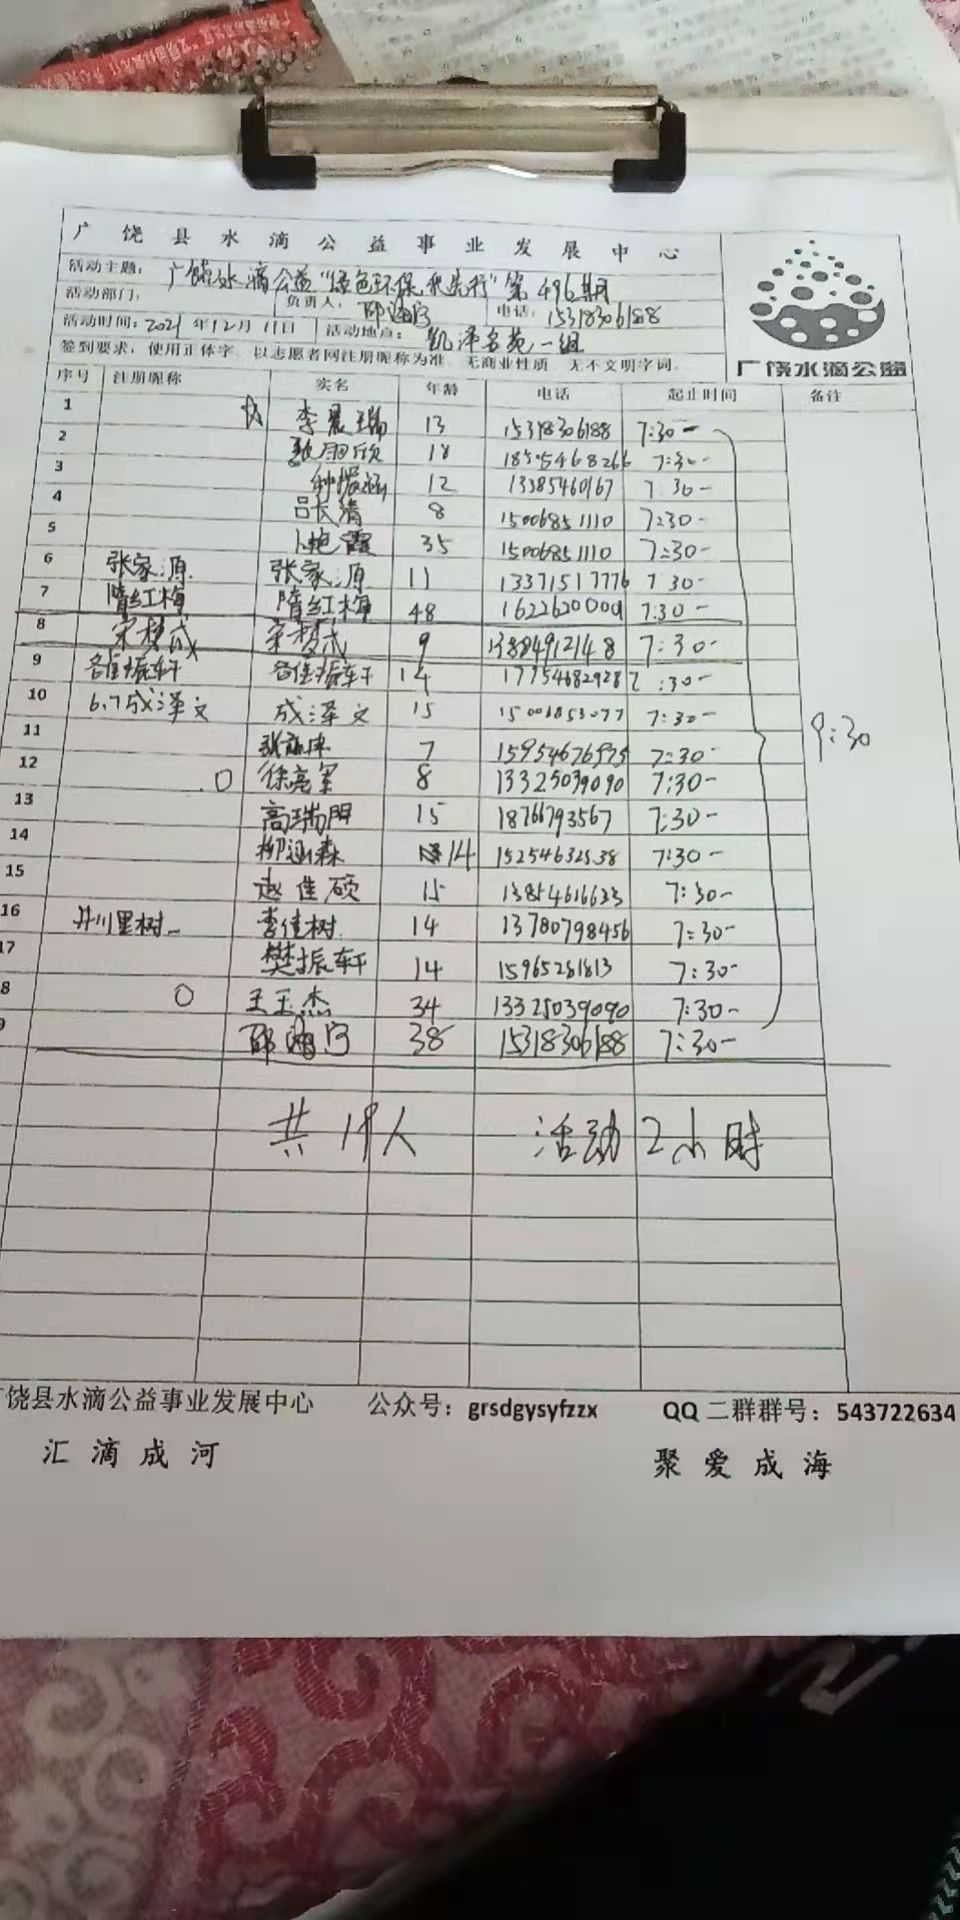 广饶县水滴公益事业发展中心
活动主题：广饶水滴公益“绿色环保，我先行”第496期
活动部门： 负责人： 电话：15318306188
活动时间：2021年12月11日 活动地点：凯泽名苑一组
签到要求：使用正体字，以志愿者网注册昵称为准，无商业性质，无不文明字词。
广饶水滴公益
序号 注册昵称 实名 年龄 电话 起止时间 备注
1 李晨瑞 13 15318306188 7:30-
2 18 18505468266 7:30-
3 12 13385460167 7:30-
4 吕长清 8 15006851110 7:30-
5 35 15006851110 7:30-
6 张家源 张家源 11 13371517776 7:30-
7 隋红梅 隋红梅 48 1622620000 7:30-
8 宋梦成 宋梦成 9 13884912148 7:30-
9 14 17754682928 7:30-
10 6.7成泽文 成泽文 15 15006853077 7:30-
9:30
11 7 15954676575 7:30-
12 徐亮军 8 13325039090 7:30-
13 高瑞阳 15 18766793567 7:30-
14 柳涵森 14 15254632538 7:30-
15 赵佳硕 15 13854616633 7:30-
16 井川里树 李佳树 14 13780798456 7:30-
17 樊振轩 14 15965281813 7:30-
8 王玉杰 34 13325039090 7:30-
9 38 15318306188 7:30-
共19人 活动2小时
饶县水滴公益事业发展中心 公众号：grsdgysyfzzx QQ二群群号：543722634
汇滴成河 聚爱成海